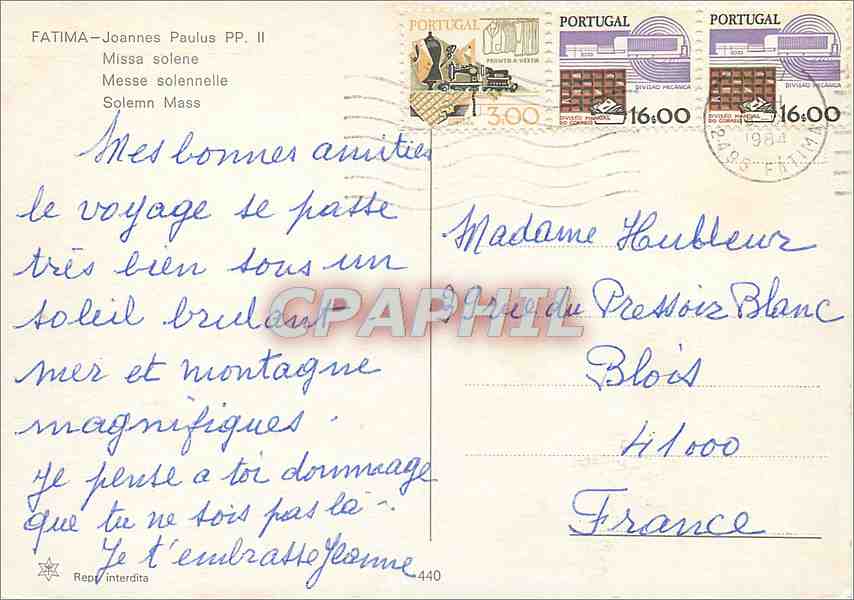 FATIMA—Joannes Paulus PP. II
Missa solene
Messe solennelle
Solemn Mass
PORTUGAL
PRONTO A VESTIR
3.00
PORTUGAL
DIVISÃO MECÂNICA
DIVISÃO MANUAL
DO CORREIO
16$00
PORTUGAL
DIVISÃO MECÂNICA
DIVISÃO MANUAL
DO CORREIO
16$00
1984
2495 FATIMA
Mes bonnes amitiés
le voyage se passe
très bien sous un
soleil brulant
mer et montagne
magnifiques.
Je pense a toi dommage
que tu ne sois pas là.
Je t'embrasse Jeanne
Madame Hubleur
99 rue du Pressoir Blanc
Blois
41000
France
CPAPHIL
Repr. interdita
440